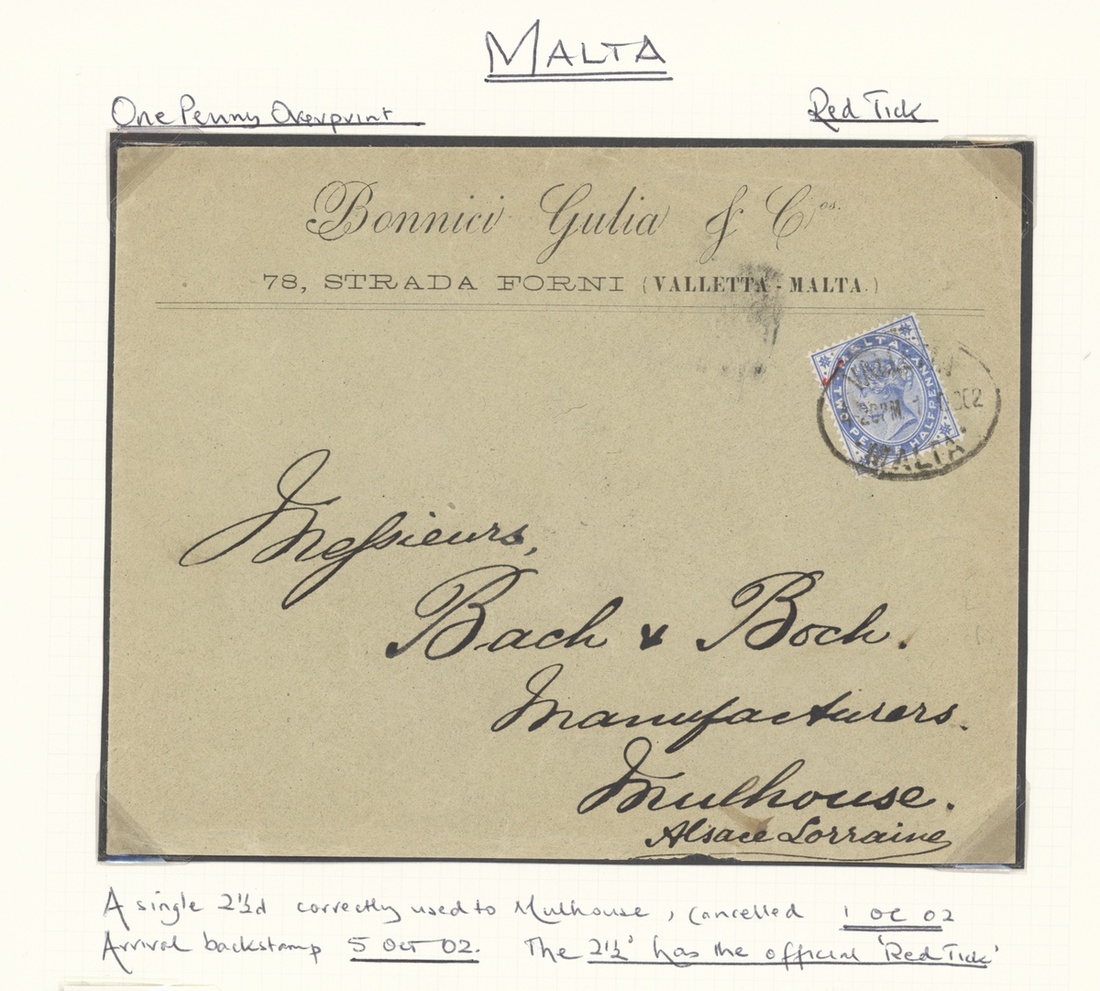 MALTA
One Penny Overprint Red Tick
Bonnici Gulia & Cos.
78, STRADA FORNI (VALLETTA - MALTA.)
MALTA
TWO PENCE HALFPENNY
MALTA
Messieurs,
Bach & Boch.
Manufacturers.
Mulhouse.
Alsace Lorraine
A single 2½d correctly used to Mulhouse, cancelled 1 OC 02
Arrival backstamp 5 Oct 02. The 2½' has the official 'Red Tick'